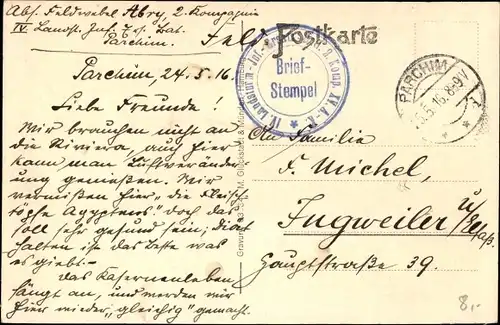 Abs. Feldwebel Abry, 2. Kompagnie
IV. Landst. Inft. Ers. Bat.
Parchim.
Feld Postkarte
Parchim, 24.5.16.
Liebe Freunde!
Wir brauchen nicht an
die Riviera, auch hier
kann man Luftveränder
ung genießen. Wir
vermißen hier „die Fleisch
töpfe Agyptens" doch das
soll sehr gesund sein; diät
halten ist das Beste was
es giebt.-
Das Kasernenleben
fängt an, und werden wir
hier wieder „gleichig" gemacht.
IV. Landsturm-Inf.
Komp. IV. A.K.
Brief-
Stempel
PARCHIM
5.16.8-9V
An Familie
F. Michel,
Ingweiler
u/Elsaß.
Hauptstraße 39.
8,-